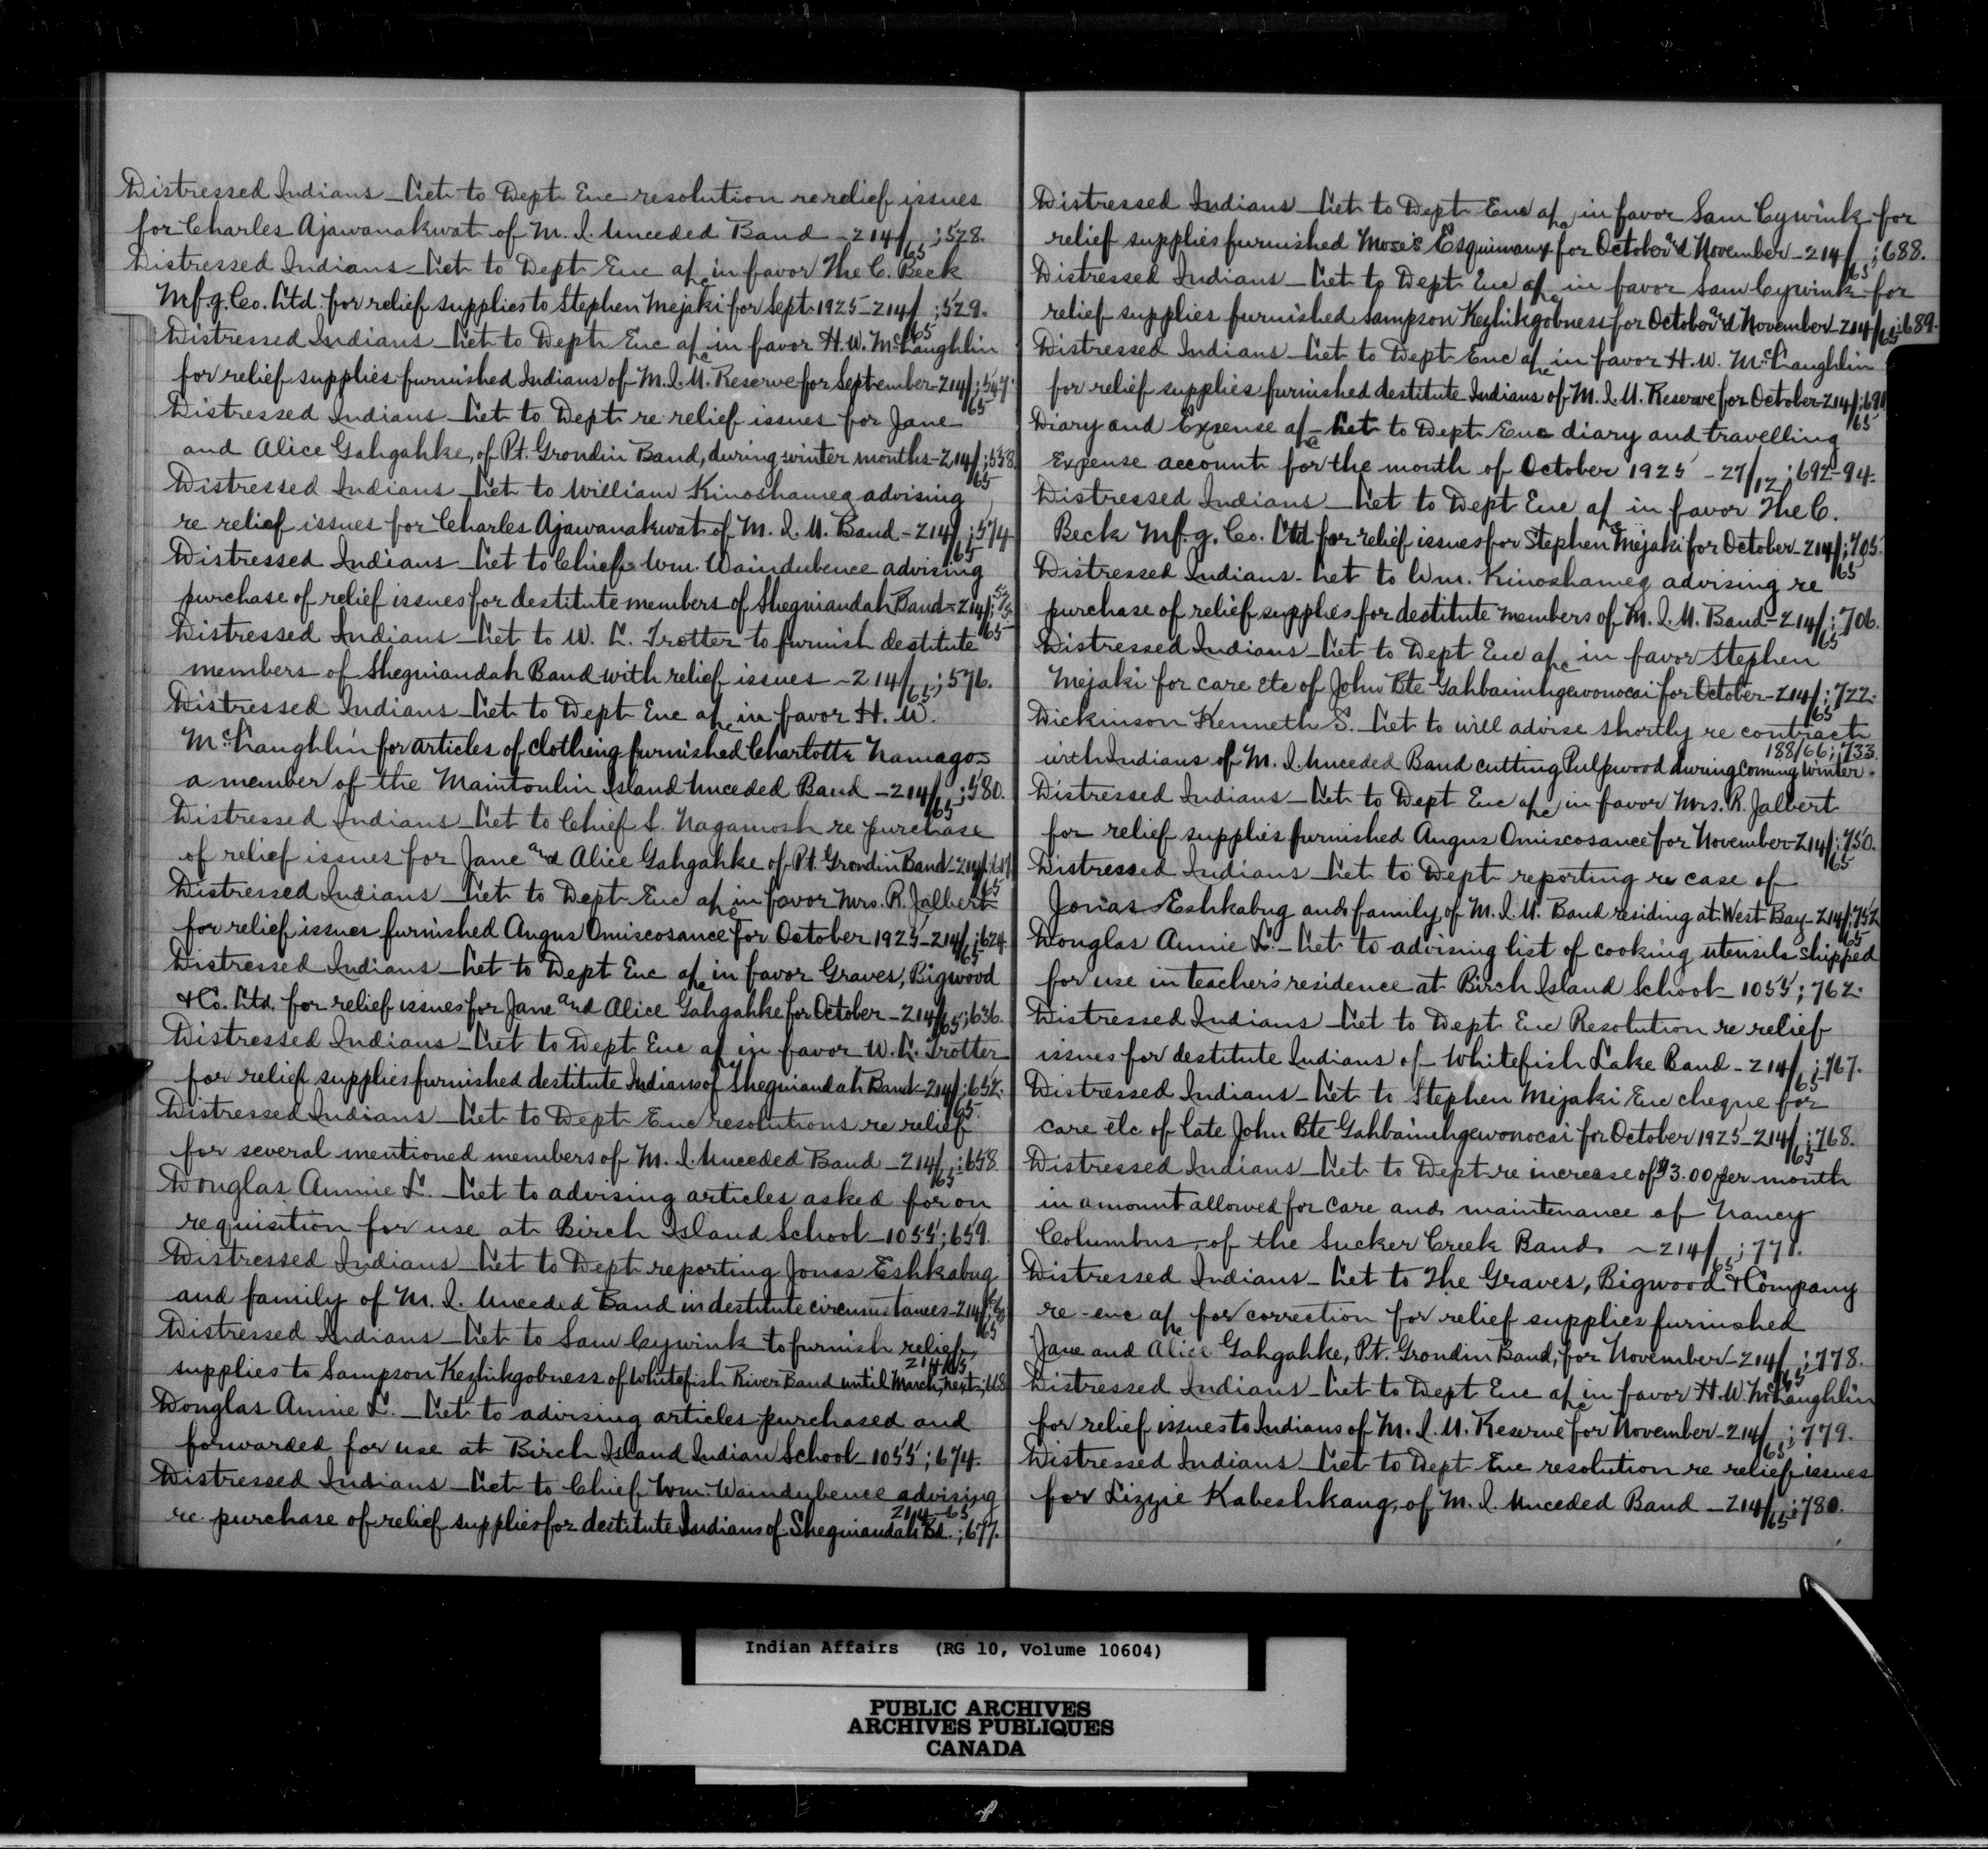 Distressed Indians – Let to Dept Enc resolution re relief issues
for Charles Ajawanakwat of M. I. Unceded Band – 214/65; 528.
Distressed Indians – Let to Dept Enc a/c in favor The C. Beck
Mfg. Co. Ltd. for relief supplies to Stephen Mejaki for Sept. 1925 – 214/65; 529.
Distressed Indians – Let to Dept Enc a/c in favor H. W. McLaughlin
for relief supplies furnished Indians of M. I. U. Reserve for September – 214/65; 547.
Distressed Indians – Let to Dept re relief issues for Jane
and Alice Gahgahke, of Pt. Grondin Band, during winter months – 214/65; 558.
Distressed Indians – Let to William Kinoshameg advising
re relief issues for Charles Ajawanakwat of M. I. U. Band – 214/65; 574
Distressed Indians – Let to Chief Wm. Waindubence advising
purchase of relief issues for destitute members of Sheguiandah Band – 214/65; 575.
Distressed Indians – Let to W. L. Trotter to furnish destitute
members of Sheguiandah Band with relief issues – 214/65; 576.
Distressed Indians – Let to Dept Enc a/c in favor H. W.
McLaughlin for articles of clothing furnished Charlotte Namago –
a member of the Manitoulin Island Unceded Band – 214/65; 580.
Distressed Indians – Let to Chief L. Nagamosh re purchase
of relief issues for Jane and Alice Gahgahke of Pt. Grondin Band – 214/65;
Distressed Indians – Let to Dept Enc a/c in favor Mrs. R. Jalbert
for relief issues furnished Angus Omiscosance for October 1925 – 214/65; 624.
Distressed Indians – Let to Dept Enc a/c in favor Graves, Bigwood
& Co. Ltd. for relief issues for Jane and Alice Gahgahke for October – 214/65; 636.
Distressed Indians – Let to Dept Enc a/c in favor W. L. Trotter
for relief supplies furnished destitute Indians of Sheguiandah Band – 214/65; 652.
Distressed Indians – Let to Dept Enc resolutions re relief
for several mentioned members of M. I. Unceded Band – 214/65; 658.
Douglas Annie L. – Let to advising articles asked for on
requisition for use at Birch Island School – 1055; 659.
Distressed Indians – Let to Dept reporting Jonas Eshkabug
and family of M. I. Unceded Band in destitute circumstances – 214/65;
Distressed Indians – Let to Sam Cywink to furnish relief
supplies to Sampson Kezhikgobness of Whitefish River Band until March next; 214/65; 668
Douglas Annie L. – Let to advising articles purchased and
forwarded for use at Birch Island Indian School – 1055; 674.
Distressed Indians – Let to Chief Wm. Waindubence advising
re purchase of relief supplies for destitute Indians of Sheguiandah Bd. 214–65; 677.
Distressed Indians – Let to Dept Enc a/c in favor Sam Cywink for
relief supplies furnished Moses Esquimany for October and November – 214/65; 688.
Distressed Indians – Let to Dept Enc a/c in favor Sam Cywink for
relief supplies furnished Sampson Kezhikgobness for October and November – 214/65; 689.
Distressed Indians – Let to Dept Enc a/c in favor H. W. McLaughlin
for relief supplies furnished destitute Indians of M. I. U. Reserve for October – 214/65; 691
Diary and Expense a/c – Let to Dept Enc diary and travelling
Expense account for the month of October 1925 – 27/12; 692–94.
Distressed Indians – Let to Dept Enc a/c in favor The C.
Beck Mfg. Co. Ltd for relief issues for Stephen Mejaki for October – 214/65; 705.
Distressed Indians – Let to Wm. Kinoshameg advising re
purchase of relief supplies for destitute members of M. I. U. Band – 214/65; 706.
Distressed Indians – Let to Dept Enc a/c in favor Stephen
Mejaki for care etc of John Bte Gahbaimhgewonocai for October – 214/65; 722.
Dickinson Kenneth S. – Let to will advise shortly re contract
with Indians of M. I. Unceded Band cutting Pulpwood during coming Winter. 188/66; 733.
Distressed Indians – Let to Dept Enc a/c in favor Mrs. R. Jalbert
for relief supplies furnished Angus Omiscosance for November – 214/65; 750.
Distressed Indians – Let to Dept reporting re case of
Jonas Eshkabug and family, of M. I. U. Band residing at West Bay – 214/65; 752
Douglas Annie L. – Let to advising list of cooking utensils shipped
for use in teacher's residence at Birch Island School – 1055; 762.
Distressed Indians – Let to Dept Enc Resolution re relief
issues for destitute Indians of Whitefish Lake Band – 214/65; 767.
Distressed Indians – Let to Stephen Mejaki Enc cheque for
care etc of late John Bte Gahbaimhgewonocai for October 1925 – 214/65; 768.
Distressed Indians – Let to Dept re increase of $3.00 per month
in amount allowed for care and maintenance of Nancy
Columbus, of the Sucker Creek Band – 214/65; 771.
Distressed Indians – Let to The Graves, Bigwood & Company
re-enc a/c for correction for relief supplies furnished
Jane and Alice Gahgahke, Pt. Grondin Band, for November – 214/65; 778.
Distressed Indians – Let to Dept Enc a/c in favor H. W. McLaughlin
for relief issues to Indians of M. I. U. Reserve for November – 214/65; 779.
Distressed Indians – Let to Dept Enc resolution re relief issues
for Lizzie Kabeshkang, of M. I. Unceded Band – 214/65; 780.
Indian Affairs (RG 10, Volume 10604)
PUBLIC ARCHIVES
ARCHIVES PUBLIQUES
CANADA